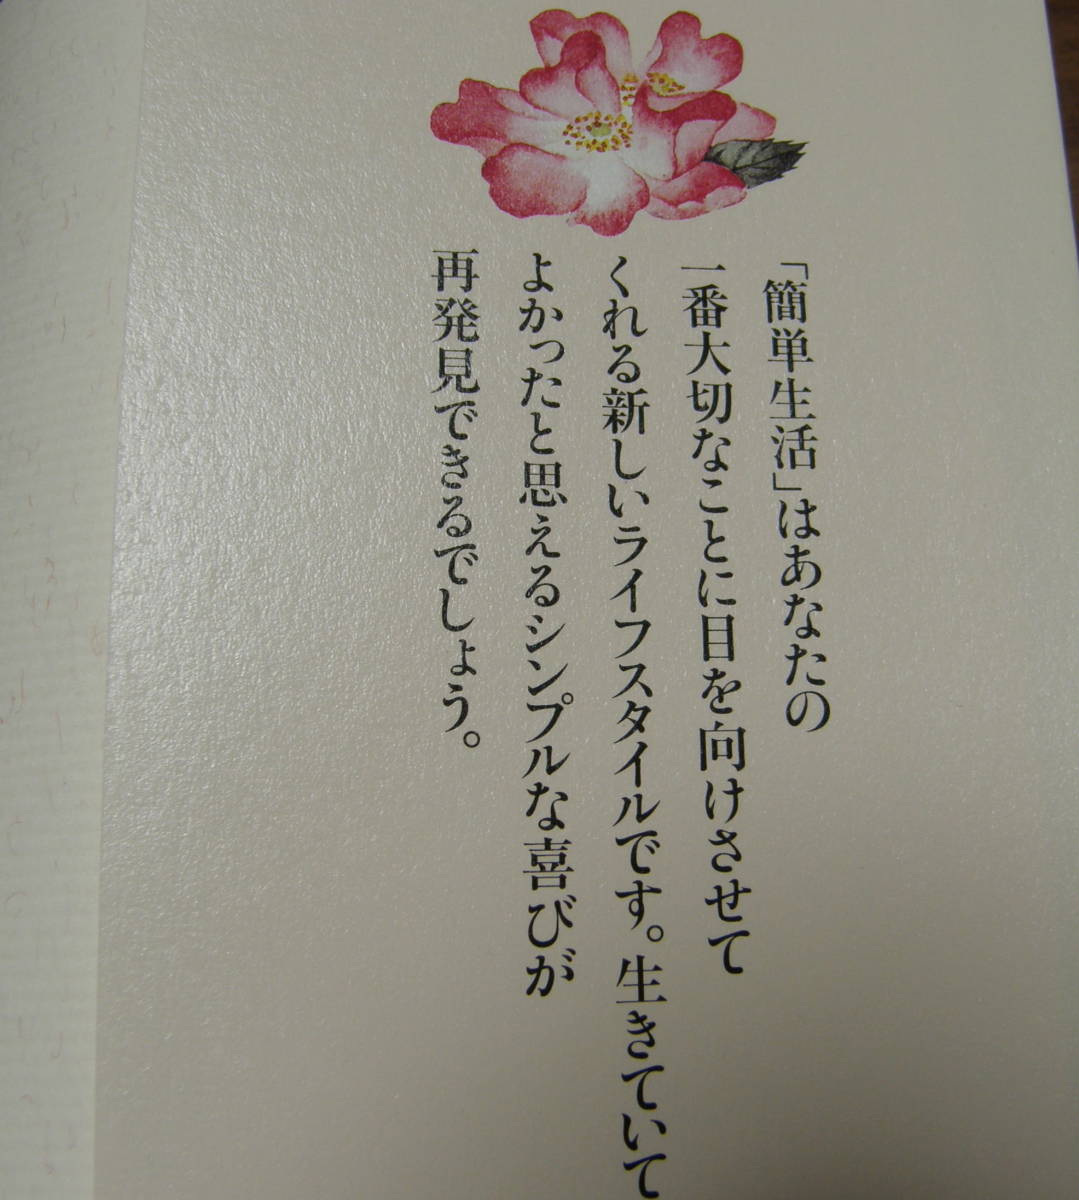 「簡単生活」はあなたの
一番大切なことに目を向けさせて
くれる新しいライフスタイルです。生きていて
よかったと思えるシンプルな喜びが
再発見できるでしょう。